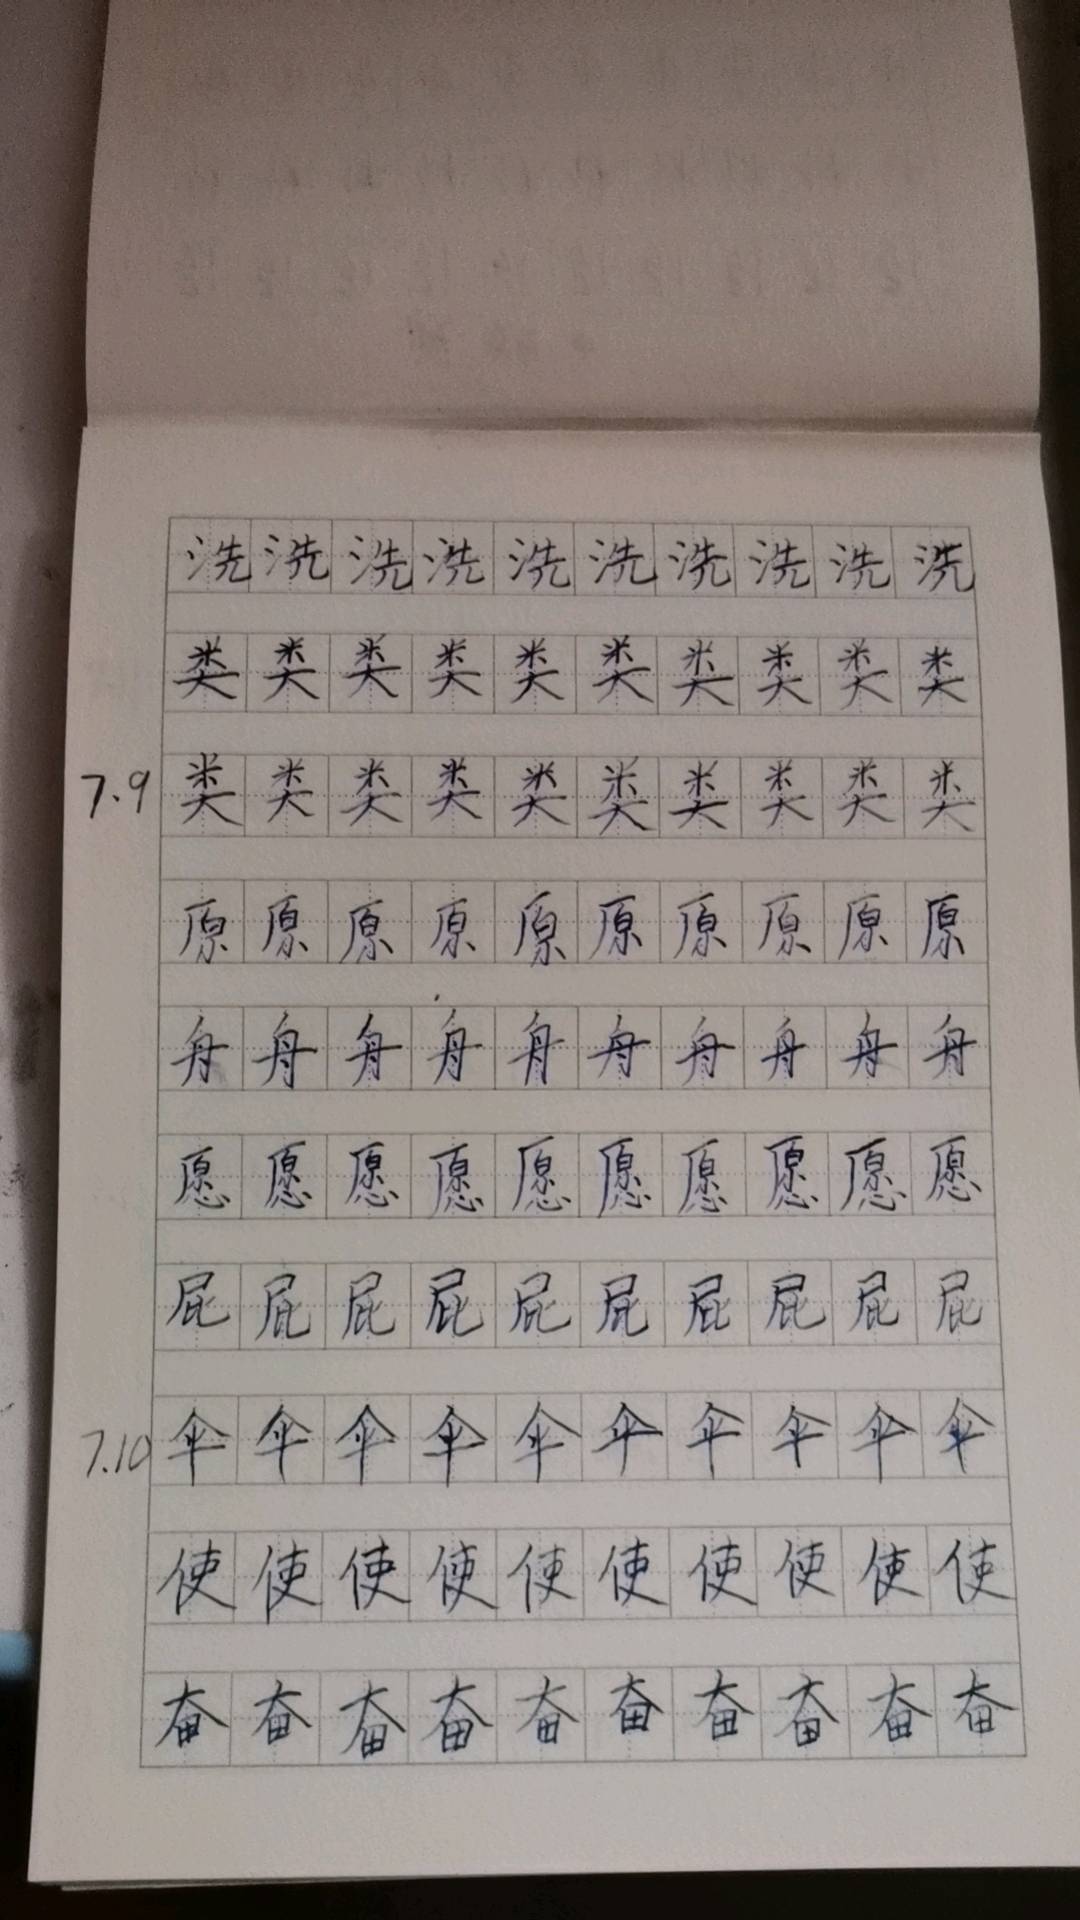 洗洗洗洗洗洗洗洗洗洗
类类类类类类类类类类
7.9 类类类类类类类类类类
原原原原原原原原原原
舟舟舟舟舟舟舟舟舟舟
愿愿愿愿愿愿愿愿愿愿
屁屁屁屁屁屁屁屁屁屁
7.10 伞伞伞伞伞伞伞伞伞伞
使使使使使使使使使使
奋奋奋奋奋奋奋奋奋奋